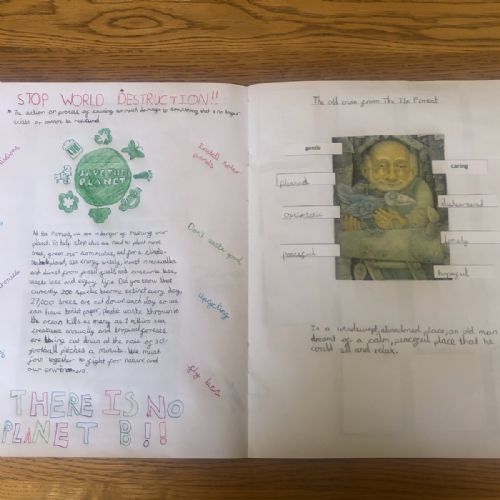 STOP WORLD DESTRUCTION!!
* The action or process of causing so much damage to something that it no longer
exists or cannot be
SAVE THE
PLANET
Install solar
panels
Don't waste food
Upcycling
fly less
At the moment, we are in danger of our
planet. To help stop this we need to plant more
trees, green our communities,
use energy wisely, invest in renewables
and divest from fossil fuels and consume less,
waste less and enjoy life. Did you know that
currently 200 species become extinct every day,
27,000 trees are cut down each day so we
can have toilet paper, plastic waste thrown in
the ocean kills as many as 1 million sea
creatures annually and tropical forests
are being cut down at the rate of 30
football pitches a minute. We must
join together to fight for nature and
our
THERE IS NO
PLANET B!!
The old man from The Tin Forest
gentle
caring
pleased
disheartened
optimistic
lonely
peaceful
hopeful
In a windswept, abandoned place, an old man
dreamt of a calm, peaceful place that he
could sit and relax.